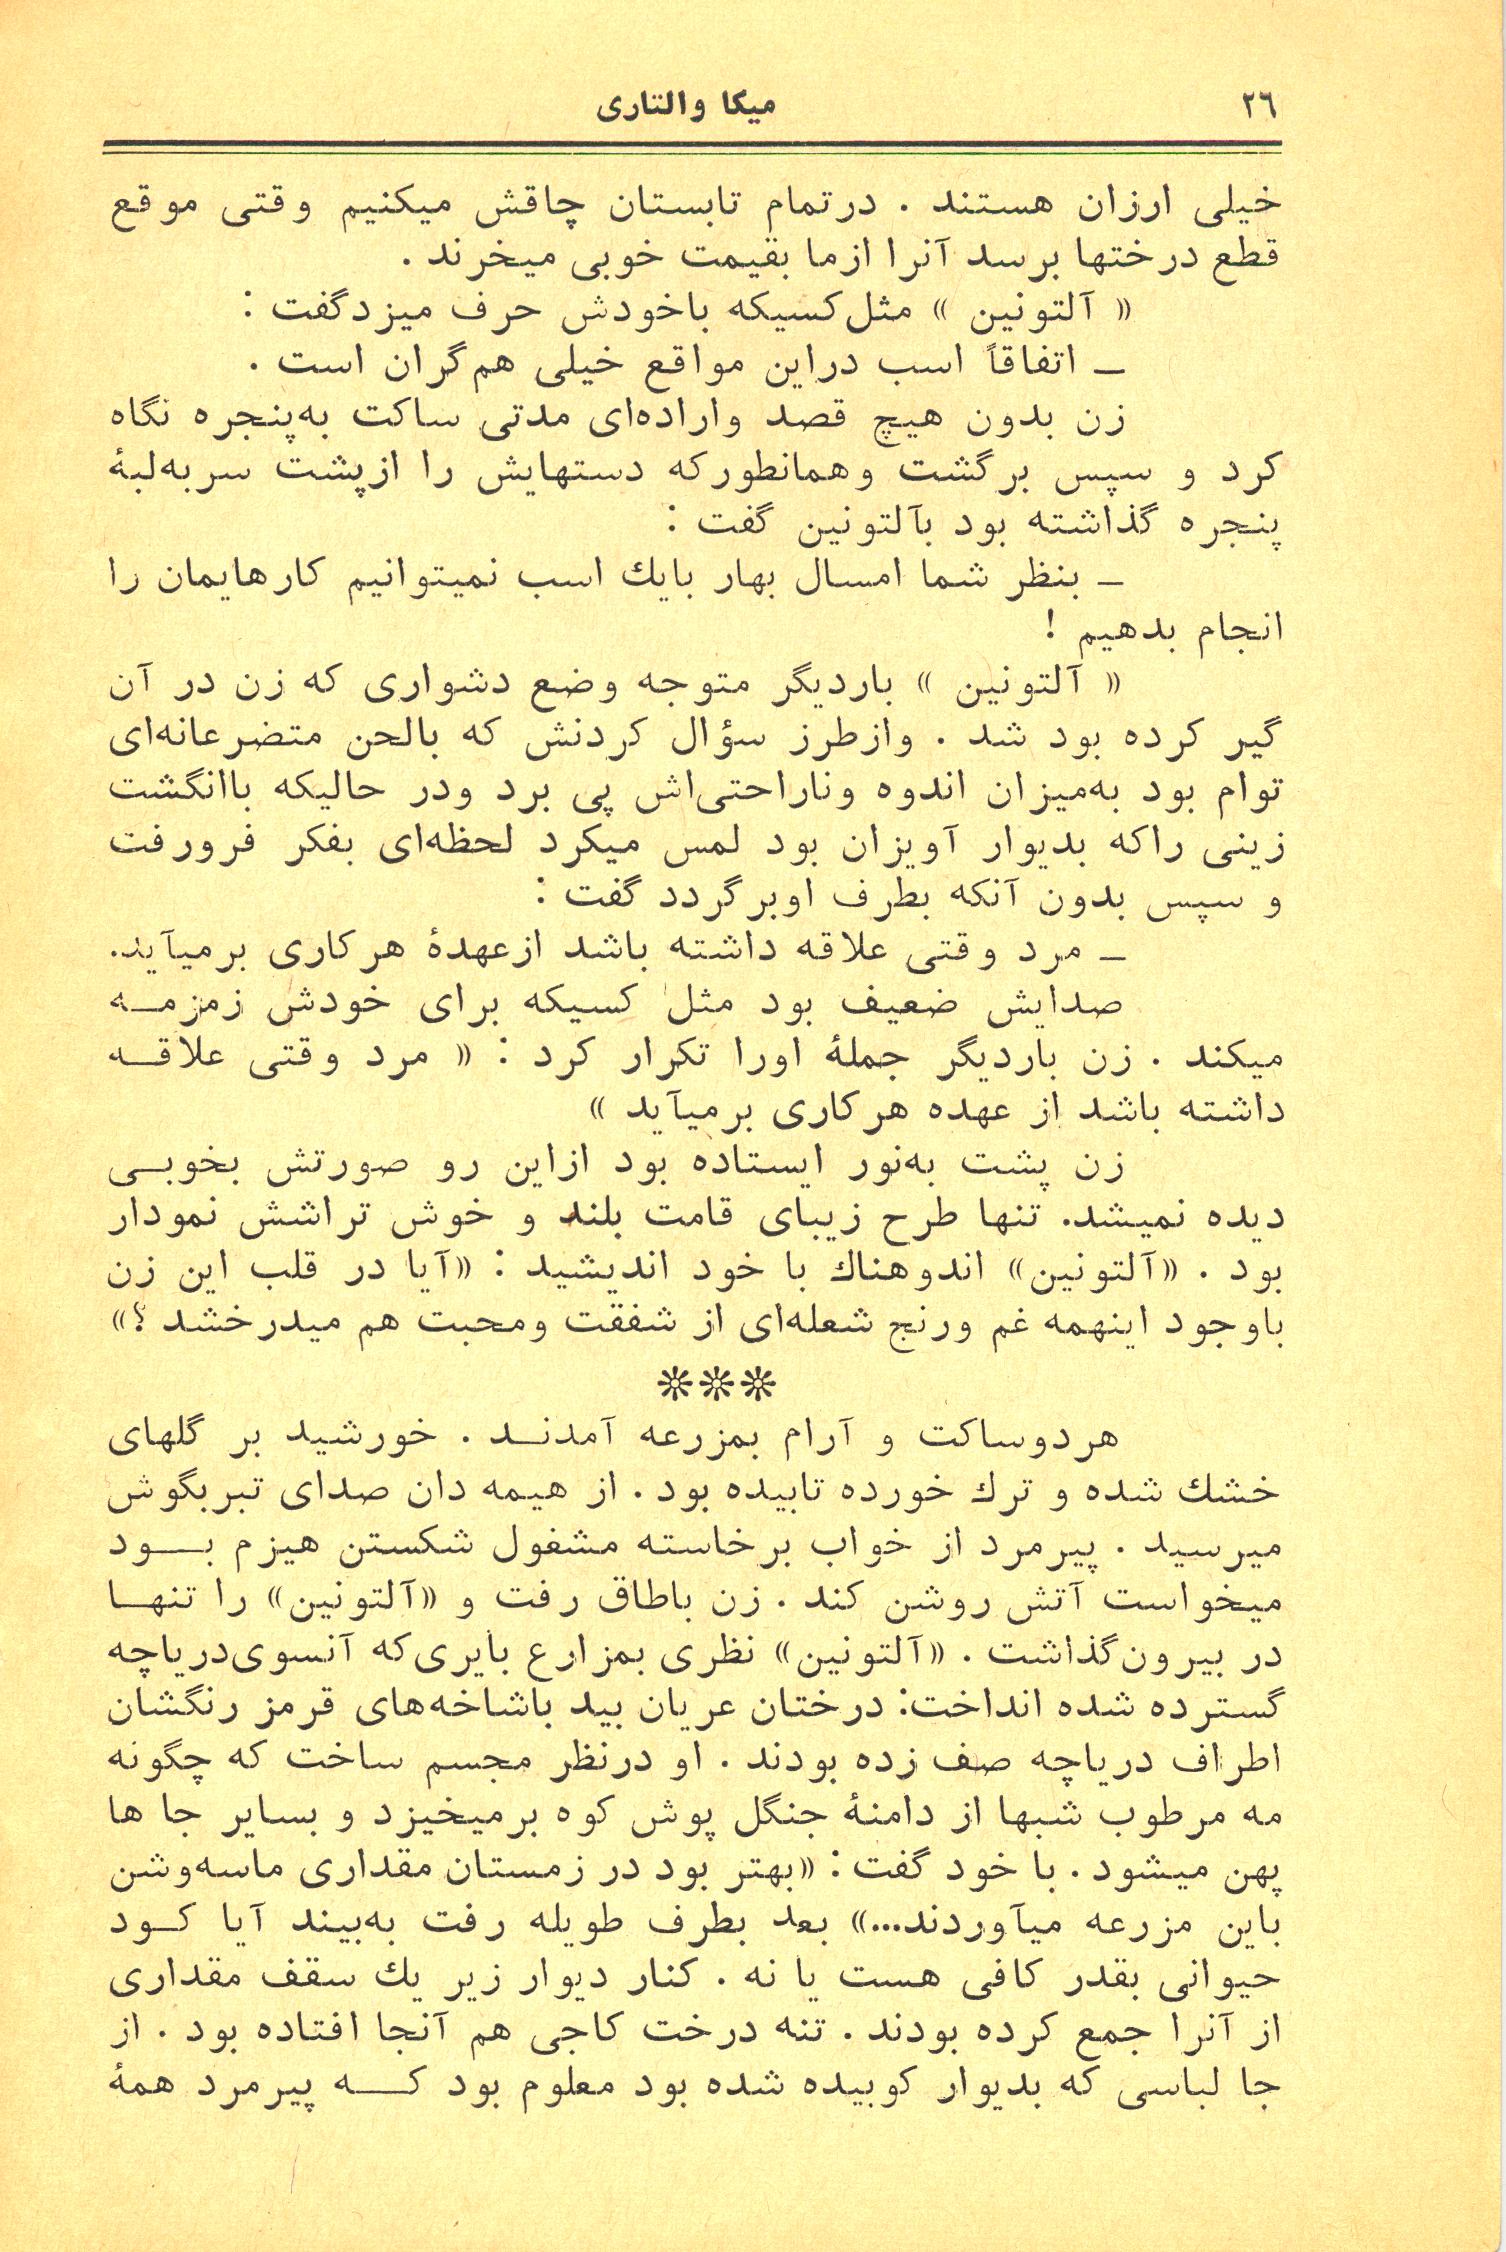 ۲۶
میکا والتاری
خیلی ارزان هستند . درتمام تابستان چاقش میکنیم وقتی موقع
قطع درختها برسد آنرا ازما بقیمت خوبی میخرند .
« آلتونین » مثل کسیکه باخودش حرف میزدگفت :
ـ اتفاقاً اسب دراین مواقع خیلی هم گران است .
زن بدون هیچ قصد واراده‌ای مدتی ساکت به‌پنجره نگاه
کرد و سپس برگشت وهمانطورکه دستهایش را ازپشت سربه‌لبهٔ
پنجره گذاشته بود بآلتونین گفت :
ـ بنظر شما امسال بهار بایك اسب نمیتوانیم کارهایمان را
انجام بدهیم !
« آلتونین » باردیگر متوجه وضع دشواری که زن در آن
گیر کرده بود شد . وازطرز سؤال کردنش که بالحن متضرعانه‌ای
توام بود به‌میزان اندوه وناراحتی‌اش پی برد ودر حالیکه باانگشت
زینی راکه بدیوار آویزان بود لمس میکرد لحظه‌ای بفکر فرورفت
و سپس بدون آنکه بطرف اوبرگردد گفت :
ـ مرد وقتی علاقه داشته باشد ازعهدهٔ هرکاری برمیآید.
صدایش ضعیف بود مثل کسیکه برای خودش زمزمـه
میکند . زن باردیگر جملهٔ اورا تکرار کرد : « مرد وقتی علاقـه
داشته باشد از عهده هرکاری برمیآید »
زن پشت به‌نور ایستاده بود ازاین رو صورتش بخوبـی
دیده نمیشد. تنها طرح زیبای قامت بلند و خوش تراشش نمودار
بود . «آلتونین» اندوهناك با خود اندیشید : «آیا در قلب این زن
باوجود اینهمه غم ورنج شعله‌ای از شفقت ومحبت هم میدرخشد ؟»
***
هردوساکت و آرام بمزرعه آمدنـد . خورشید بر گلهای
خشك شده و ترك خورده تابیده بود . از هیمه دان صدای تبربگوش
میرسید . پیرمرد از خواب برخاسته مشغول شکستن هیزم بـود
میخواست آتش روشن کند . زن باطاق رفت و «آلتونین» را تنهـا
در بیرون‌گذاشت . «آلتونین» نظری بمزارع بایری‌که آنسوی‌دریاچه
گسترده شده انداخت: درختان عریان بید باشاخه‌های قرمز رنگشان
اطراف دریاچه صف زده بودند . او درنظر مجسم ساخت که چگونه
مه مرطوب شبها از دامنهٔ جنگل پوش کوه برمیخیزد و بسایر جا ها
پهن میشود . با خود گفت : «بهتر بود در زمستان مقداری ماسه‌وشن
باین مزرعه میآوردند...» بعد بطرف طویله رفت به‌بیند آیا کـود
حیوانی بقدر کافی هست یا نه . کنار دیوار زیر یك سقف مقداری
از آنرا جمع کرده بودند . تنه درخت کاجی هم آنجا افتاده بود . از
جا لباسی که بدیوار کوبیده شده بود معلوم بود کـه پیرمرد همهٔ